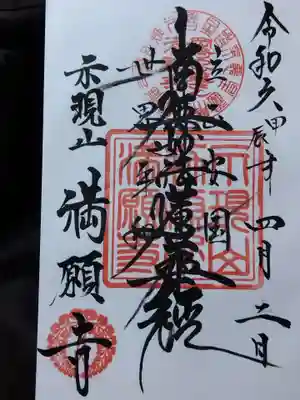 令和六甲辰年四月二日
立正安国
南無妙法蓮華経
世界平和
示現山
満願寺